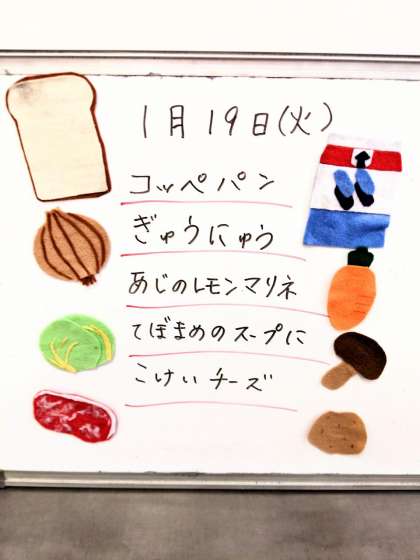 1月19日(火)
コッペパン
ぎゅうにゅう
あじのレモンマリネ
てぼまめのスープに
こけいチーズ